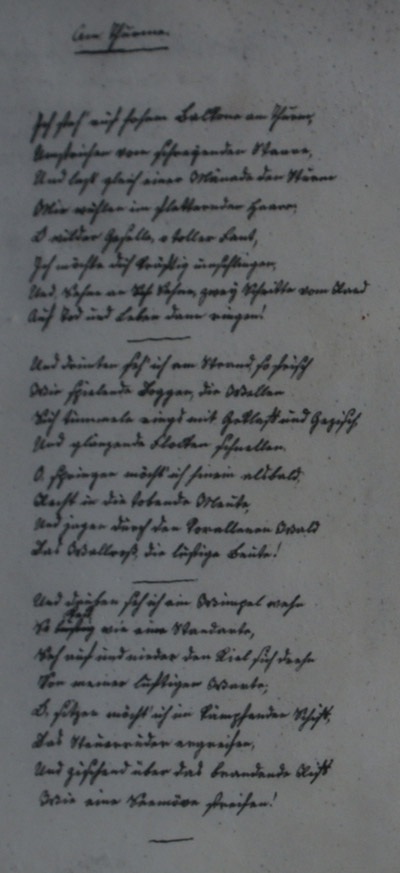 Am Thurme.
Ich steh' auf hohem Balkone am Thurm,
Umstrichen vom schreyenden Staare,
Und laß' gleich einer Mänade den Sturm
Mir wühlen im flatternden Haare;
O wilder Geselle, o toller Fant,
Ich möchte dich kräftig umschlingen,
Und, Sehne an Sehne, zwey Schritte vom Rand
Auf Tod und Leben dann ringen!
Und drunten seh' ich am Strand, so frisch
Wie spielende Doggen, die Wellen
Sich tummeln rings mit Geklaff und Gezisch,
Und glänzende Flocken schnellen.
O, springen möcht' ich hinein alsbald,
Recht in die tobende Meute,
Und jagen durch den korallenen Wald
Das Wallroß, die lustige Beute!
Und drüben seh ich ein Wimpel wehn
So keck wie eine Standarte,
Seh auf und nieder den Kiel sich drehn
Von meiner luftigen Warte;
O, sitzen möcht' ich im kämpfenden Schiff,
Das Steuerruder ergreifen,
Und zischend über das brandende Riff
Wie eine Seemöve streifen!